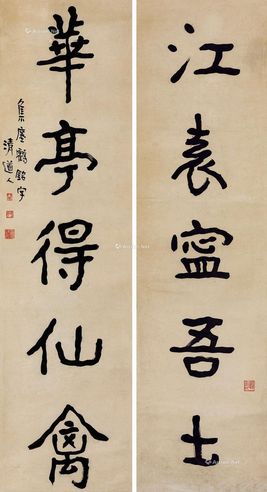 江表寧吾土
華亭得仙禽
集瘞鶴銘字
清道人